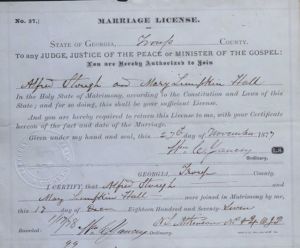 No. 37.
MARRIAGE LICENSE.
STATE OF GEORGIA, Troup COUNTY.
To any JUDGE, JUSTICE OF THE PEACE or MINISTER OF THE GOSPEL:
You are Hereby Authorized to Join
Alfred Slough and Mary Lumpkin Hall
In the Holy State of Matrimony, according to the Constitution and Laws of this
State; and for so doing, this shall be your sufficient License.
And you are hereby required to return this License to me, with your Certificate
hereon of the fact and date of the Marriage.
Given under my hand and seal, this 27th day of November 1877
Wm C Yancey
Ordinary.
GEORGIA, Troup County.
I CERTIFY, that Alfred Slough and
Mary Lumpkin Hall were joined in Matrimony by me,
this 13 day of Eighteen Hundred and Seventy Seven
Recorded:
Wm C Yancey
Ordinary.
99